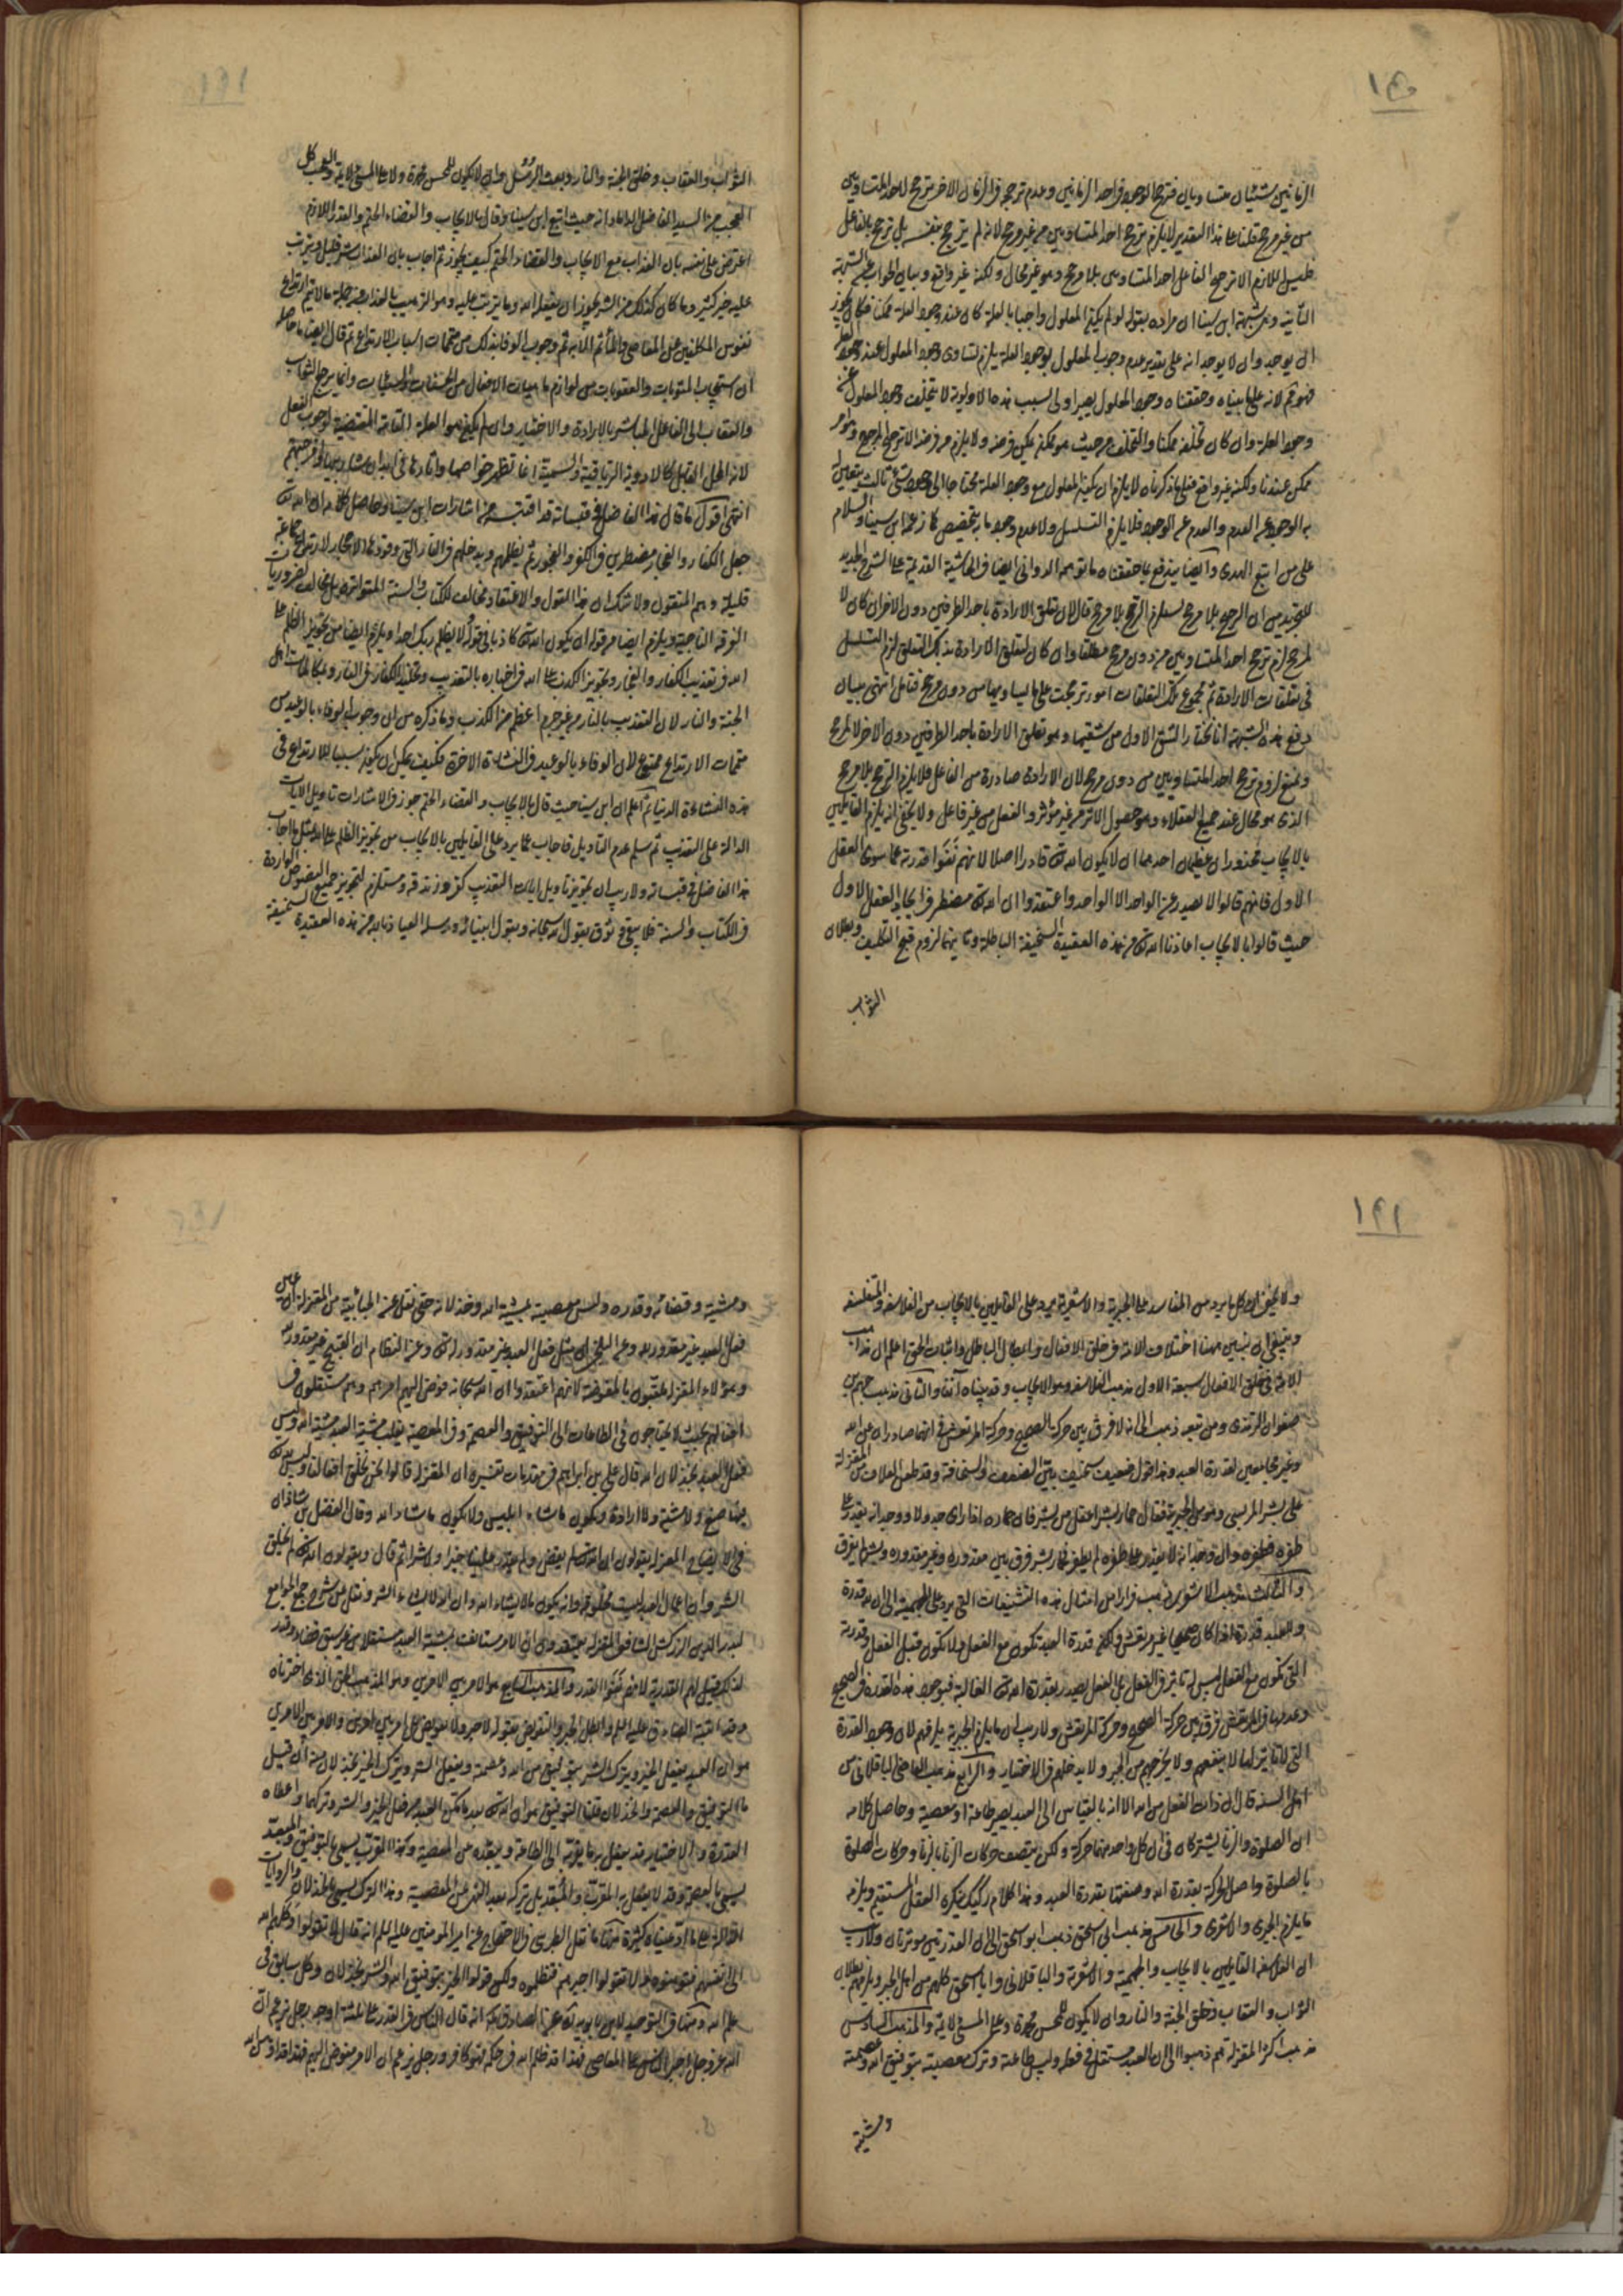 الزمانين شيئان متساويان فترجح الوجود في احد الزمانين وعدم ترجحه في الزمان الاخر ترجح لاحد المتساويين
من غير مرجح قلنا على هذا التقدير لا يلزم ترجح احد المتساويين من غير مرجح لانه لم يترجح بنفسه بل ترجح بالفاعل
فليس اللازم الا ترجيح الفاعل احد المتساويين بلا مرجح وهو غير محال ولكنه غير واقع وبيان الجواب عن الشبهة
الثانية وهي شبهة ابن سينا ان مراده بقوله لو لم يكن المعلول واجبا بالعلة كان عند وجود العلة ممكنا فكان يجوز
ان يوجد وان لا يوجد انه على تقدير عدم وجوب المعلول بوجود العلة يلزم تساوي وجود المعلول عند وجود العلة
فهو لانه على ما بيناه وحققناه وجود المعلول يصير اولى لسبب هذه الاولوية لا يتخلف وجود المعلول عن
وجود العلة وان كان تخلفه ممكنا والتخلف من حيث هو ممكن يمكن فرضه ولا يلزم من فرضه الا ترجيح المرجوح وهو امر
ممكن عندنا ولكنه غير واقع فعلى ما ذكرناه لا يلزم ان يكون المعلول مع وجود العلة محتاجا الى وجود شئ ثالث يتعين له
به الوجود عن العدم والعدم عن الوجود فلا يلزم التسلسل ولا عدم وجود ما به تخصيص كما زعمه ابن سينا والسلام
على من اتبع الهدى وايضا يندفع بما حققناه ما توهمه الدواني ايضا في الحاشية القديمة على الشرح الجديد
للتجريد من ان الترجيح بلا مرجح يستلزم الترجح بلا مرجح قال لان تعلق الارادة باحد الطرفين دون الاخر ان كان لا
لمرجح لزم ترجح احد المتساويين من دون مرجح مطلقا وان كان لتعلق الارادة بذلك التعلق لزم التسلسل
في تعلقات الارادة ثم مجموع تلك التعلقات امور ترجحت على ما يساويها من دون مرجح فتامل انتهى بيان
دفع هذه الشبهة انا نختار الشق الاول من شقيها وهو تعلق الارادة باحد الطرفين دون الاخر لا لمرجح
ونمنع لزوم ترجح احد المتساويين من دون مرجح لان الارادة صادرة من الفاعل فلا يلزم الترجح بلا مرجح
الذي هو محال عند جميع العقلاء وهو حصول الاثر من غير مؤثر والفعل من غير فاعل ولا يخفى انه يلزم القايلين
بالايجاب محذوران عظيمان احدهما ان لا يكون الله تعالى قادرا اصلا لانهم نفوا قدرته عما سوى العقل
الاول فانهم قالوا لا يصدر عن الواحد الا الواحد واعتقدوا ان الله تعالى مضطر في ايجاد العقل الاول
حيث قالوا بالايجاب اعاذنا الله تعالى من هذه العقيدة السخيفة الباطلة وثانيهما لزوم قبح التكليف وبطلان
الثواب
الثواب والعقاب وخلق الجنة والنار وبعث الرسل وان لا يكون للمحسن محمدة ولا على المسئ لائمة والعجب كل
العجب من السيد الفاضل الداماد انه حيث اتبع ابن سينا وقال بالايجاب والقضاء الحتم والقدر اللازم
اعترض على نفسه بان العذاب مع الايجاب والقضاء الحتم كيف يجوز ثم اجاب بان العذاب شر قليل ويترتب
عليه خير كثير وما كان كذلك من الشر يجوز ان يفعله الله وما يترتب عليه وهو الترهيب بالعذاب من جملة ما لا يتم ارتداع
نفوس المكلفين عن المعاصي والمآثم الا به ثم وجوب الوفاء بذلك من متممات اسباب الارتداع ثم قال ايضا ما حاصله
ان استيجاب المثوبات والعقوبات من لوازم ماهيات الافعال من الحسنات والسيئات وانما يرجع الثواب
والعقاب الى الفاعل المباشر بالارادة والاختيار وان لم يكن هو العلة التامة المقتضية لوجوب الفعل
لانه المحل القابل كالادوية الترياقية والسمية انما تظهر خواصها واثارها في ابدان شاربيها
انتهى اقول ما قال هذا الفاضل في قبساته قد اقتبسه من اشارات ابن سينا وحاصل كلامه ان الله تعالى
جعل الكفار والفجار مضطرين في الكفر والفجور ثم يظلمهم ويدخلهم في النار التي وقودها الاحجار لارتداع جماعة
قليلة وهم المتقون ولا شك ان هذا القول والاعتقاد مخالف للكتاب والسنة المتواترة بل مخالف لضروريات
الفرقة الناجية ويلزم ايضا من قوله ان يكون الله تعالى كاذبا في قوله لا يظلم ربك احدا ويلزم ايضا من تجويز الظلم على
الله في تعذيب الكفار والفجار وتجويز الكذب على الله في اخباره بالتعذيب وتخليد الكفار في النار ومكالمات اهل
الجنة والنار لان التعذيب بالنار من غير جرم اعظم من الكذب وما ذكره من ان وجوب الوفاء بالوعيد من
متممات الارتداع ممنوع لان الوفاء بالوعيد في النشاءة الاخرة فكيف يمكن ان يكون سببا للارتداع في
هذه النشاءة الدنيا ثم اعلم ان ابن سينا حيث قال بالايجاب والقضاء الحتم جوز في الاشارات تاويل الايات
الدالة على التعذيب ثم سلم عدم التاويل فاجاب عما يرد على القايلين بالايجاب من تجويز الظلم على الله بمثل ما اجاب
هذا الفاضل في قبساته ولا ريب ان تجويز تاويل ايات التعذيب كفر وزندقة ومستلزم لتجويز جميع النصوص الواردة
في الكتاب والسنة فلا يبقى وثوق بقول الله سبحانه وبقول انبيائه ورسله العياذ بالله من هذه العقيدة السخيفة
ولا يخفى ان كل ما يرد من المفاسد على الجبرية والاشعرية يرد على القايلين بالايجاب من الفلاسفة والمتفلسفة
وينبغي ان نبين ههنا اختلاف الامة في خلق الافعال وابطال الباطل واثبات الحق اعلم ان مذاهب
الامة في خلق الافعال سبعة الاول مذهب الفلاسفة وهو الايجاب وقد بيناه آنفا والثاني مذهب جهم بن
صفوان الترمذي ومن تبعه ذهب الى انه لا فرق بين حركة الصحيح وحركة المرتعش في انهما صادران من الله
وغير مجامعين لقدرة العبد وهذا قول ضعيف سخيف بين الضعف والسخافة وقد طعن العلاف من المعتزلة
على بشر المريسي وهو من الجبرية فقال حمار بشر اعقل من بشر فان حماره اذا راى جدولا ووجد انه يقدر على
طفره طفره وان وجد انه لا يقدر على طفره لم يطفر فحمار بشر فرق بين مقدوره وغير مقدوره وبشر لم يفرق
والثالث مذهب الاشعري ذهب فرارا من امثال هذه التشنيعات التي يرد على الجهمية الى ان لله قدرة
وللعبد قدرة اذا كان صحيحا غير مرتعش ولكن قدرة العبد تكون مع الفعل ولا تكون قبل الفعل وقدرته
التي تكون مع الفعل ليس لها تاثير في الفعل بل الفعل يصدر بقدرة الله تعالى الغالبة فبوجود هذه القدرة في الصحيح
وعدمها في المرتعش فرق بين حركة الصحيح وحركة المرتعش ولا ريب ان ما يلزم الجبرية يلزمهم لان وجود القدرة
التي لا تاثير لها لا ينفعهم ولا يخرجهم من الجبر ولا يدخلهم في الاختيار والرابع مذهب القاضي الباقلاني من
اهل السنة قال ان ذات الفعل من الله الا انه بالقياس الى العبد يصير طاعة او معصية وحاصل كلامه
ان الصلوة والزنا يشتركان في ان كل واحد منهما حركة ولكن يتصف حركات الزنا بالزنا وحركات الصلوة
بالصلوة واصل الحركة بقدرة الله وصفتها بقدرة العبد وهذا كلام ركيك ينكره العقل المستقيم ويلزمه
ما يلزم الجبري والاشعري والخامس مذهب ابي اسحق ذهب ابو اسحق الى ان القدرتين موثرتان ولا ريب
ان الفلاسفة القايلين بالايجاب والجهمية والاشعرية والباقلاني وابا اسحق كلهم من اهل الجبر ويلزمهم بطلان
الثواب والعقاب وخلق الجنة والنار وان لا يكون للمحسن محمدة وعلى المسئ لائمة والمذهب السادس
مذهب اكثر المعتزلة انهم ذهبوا الى ان العبد مستقل في فعله وليس طاعته وترك معصيته بتوفيق الله وعصمته
ومشيته
ومشيته وقضائه وقدره وليس معصيته بمشية الله وخذلانه حتى نقل عن الجبائية من المعتزلة ان عين
فعل العبد غير مقدور لله وعن البلخي ان مثل فعل العبد غير مقدور لله تعالى وعن النظام ان القبيح غير مقدور لله
وهؤلاء المعتزلة يلقبون بالمفوضة لانهم اعتقدوا ان الله سبحانه فوض اليهم امرهم وهم مستقلون في
افعالهم بحيث لا يحتاجون في الطاعات الى التوفيق والعصمة وفي المعصية يغلب مشية العبد مشية الله وليس
فعل العبد بخذلان الله قال علي بن ابراهيم في مقدمات تفسيره ان المعتزلة قالوا نحن نخلق افعالنا وليس لله تعالى
فيها صنع ولا مشية ولا ارادة ويكون ما شاء ابليس ولا يكون ما شاء الله وقال الفضل بن شاذان
في الايضاح المعتزلة يقولون ان الله تعالى لم يقض ولم يقدر علينا خيرا ولا شرا ثم قال ويقولون ان الله تعالى لم يخلق
الشر وان اعمال العباد ليست مخلوقة وانه يكون ما لا يشاء الله وان الله لا يشاء الشر ونقل عن شرح جمع الجوامع
لبدر الدين الزركشي الشافعي المعتزلة يعتقدون ان الامر مستانف بمشية العبد مستقلا من غير سبق قضاء وقدر
لذلك قيل لهم القدرية لانهم نفوا القدر والمذهب السابع هو الامر بين الامرين وهو المذهب الحق الذي اخترناه
وقد اثبته الصادق عليه السلام وابطل الجبر والتفويض بقوله لا جبر ولا تفويض بل امر بين امرين والامر بين الامرين
هو ان العبد يفعل الخير ويترك الشر بتوفيق من الله وعصمة ويفعل الشر ويترك الخير بخذلان منه ان قيل
ما التوفيق والعصمة والخذلان قلنا التوفيق هو ان الله تعالى بعد ما مكن العبد من فعل الخير والشر وتركهما واعطاه
القدرة والاختيار قد يفعل به ما يقربه الى الطاعة ويبعده من المعصية وهذا المقرب يسمى بالتوفيق والمبعد
يسمى بالعصمة وقد لا يفعل به المقرب والمبعد بل تركه بعد النهي عن المعصية وهذا الترك يسمى بالخذلان والروايات
الدالة على ما ادعيناه كثيرة منها ما نقل الطبرسي في الاحتجاج عن امير المومنين عليه السلام انه قال لا تقولوا وكلهم الله
الى انفسهم فتوهنوه ولا تقولوا اجبرهم فتظلموه ولكن قولوا الخير بتوفيق الله والشر بخذلان وكل سابق في
علم الله ومنها في التوحيد لابن بابويه ره عن الصادق ع انه قال الناس في القدر على ثلثة اوجه رجل يزعم ان
الله عز وجل اجبر الناس على المعاصي فهذا قد ظلم الله في حكمه فهو كافر ورجل يزعم ان الامر مفوض اليهم فهذا قد اوهن الله